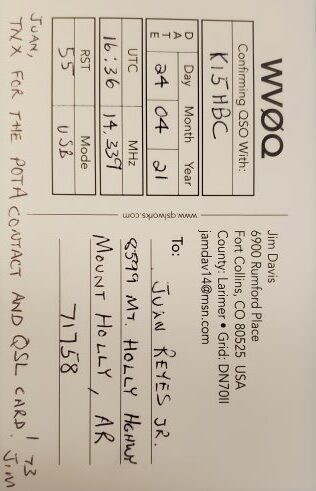 WVØQ
Confirming QSO With:
KI5HBC
DATE
Day Month Year
24 04 21
UTC MHz
16:36 14.339
RST Mode
55 USB
www.qslworks.com
Jim Davis
6900 Rumford Place
Fort Collins, CO 80525 USA
County: Larimer • Grid: DN70ll
jamdav14@msn.com
To: JUAN REYES JR.
8599 MT. HOLLY HGHWY
MOUNT HOLLY, AR
71758
JUAN,
TNX FOR THE POTA CONTACT AND QSL CARD! 73
JIM